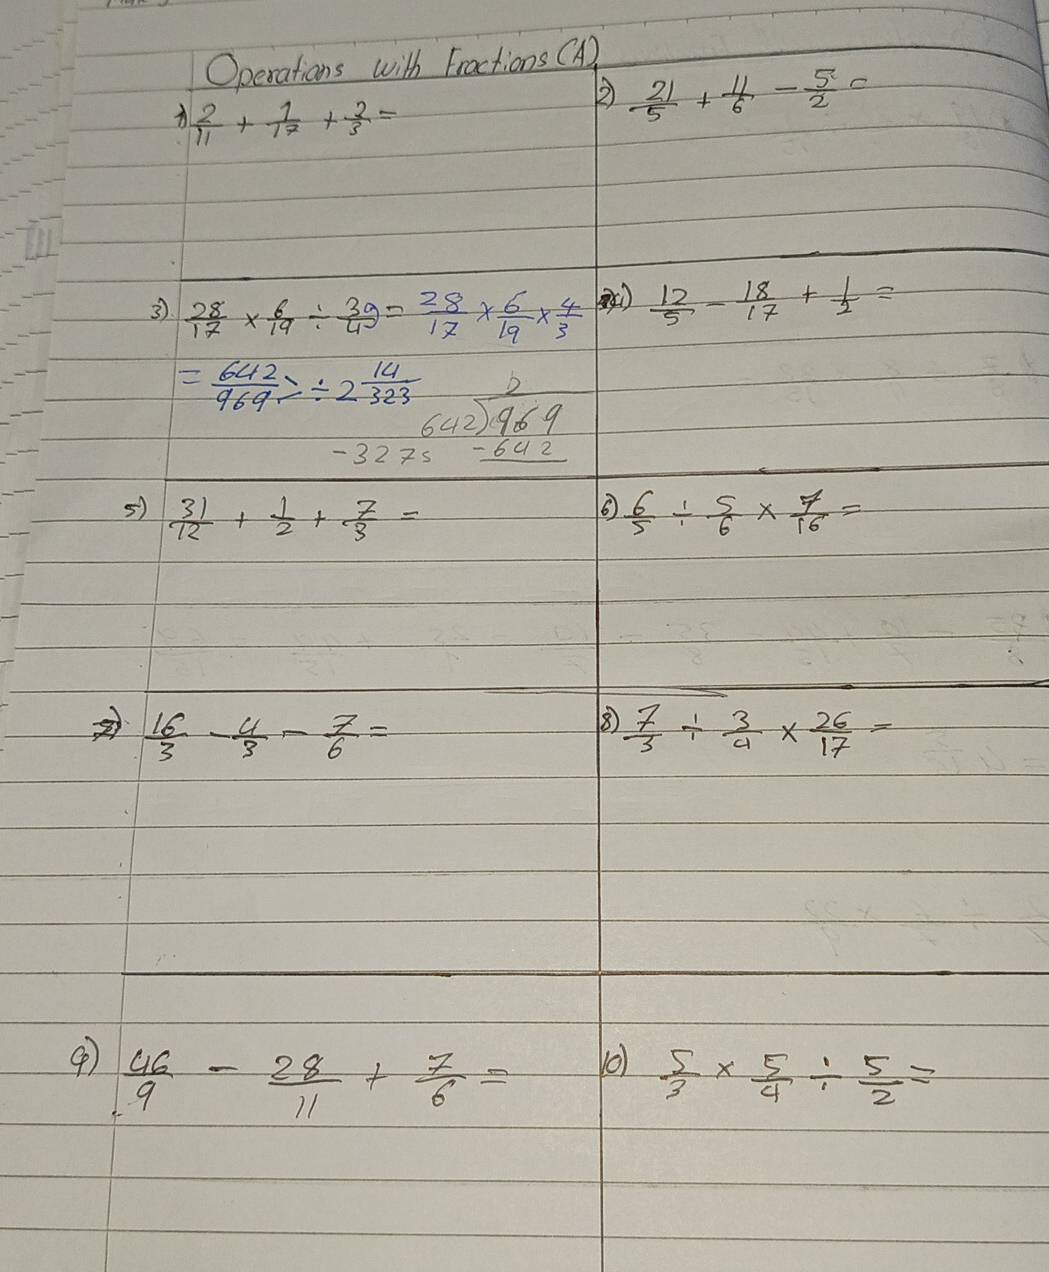 Operations with Fractions (A)
1) 2/11 + 7/17 + 2/3 =
2) 21/5 + 11/6 - 5/2 =
3) 28/17 × 6/19 ÷ 39/4 = 28/17 × 6/19 × 4/3
= 642/969 ÷ 2 14/323
2
642)969
-3275 -642
4) 12/5 - 18/17 + 1/2 =
5) 31/12 + 1/2 + 7/3 =
6) 6/5 ÷ 5/6 × 7/16 =
7) 16/3 - 4/3 - 7/6 =
8) 7/3 ÷ 3/4 × 26/17 =
9) 46/9 - 28/11 + 7/6 =
10) 5/3 × 5/4 ÷ 5/2 =